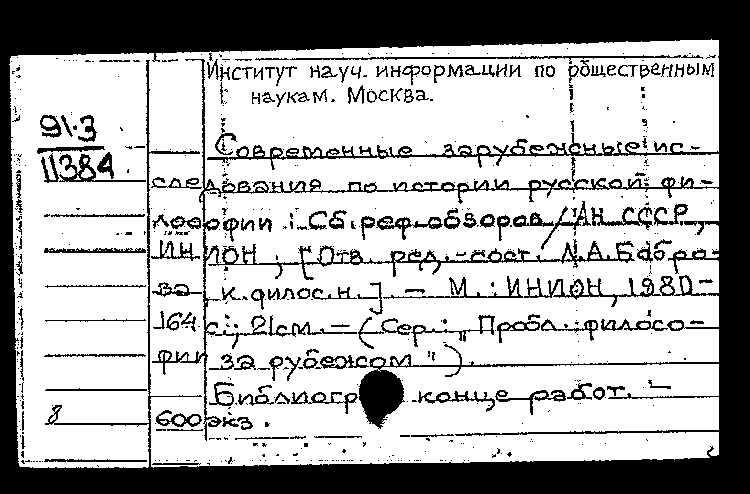 Институт науч. информации по общественным
наукам. Москва.
91·3
11384
Современные зарубежные ис-
следования по истории русской фи-
лософии : Сб. реф. обзоров / АН СССР,
ИНИОН ; [Отв. ред.-сост. Л.А.Боброва, к.филос.н.] – М. : ИНИОН, 1980-
164 с.; 21см. – (Сер.: „Пробл. филосо-
фии за рубежом").
Библиогр конце работ. –
8 600 экз.